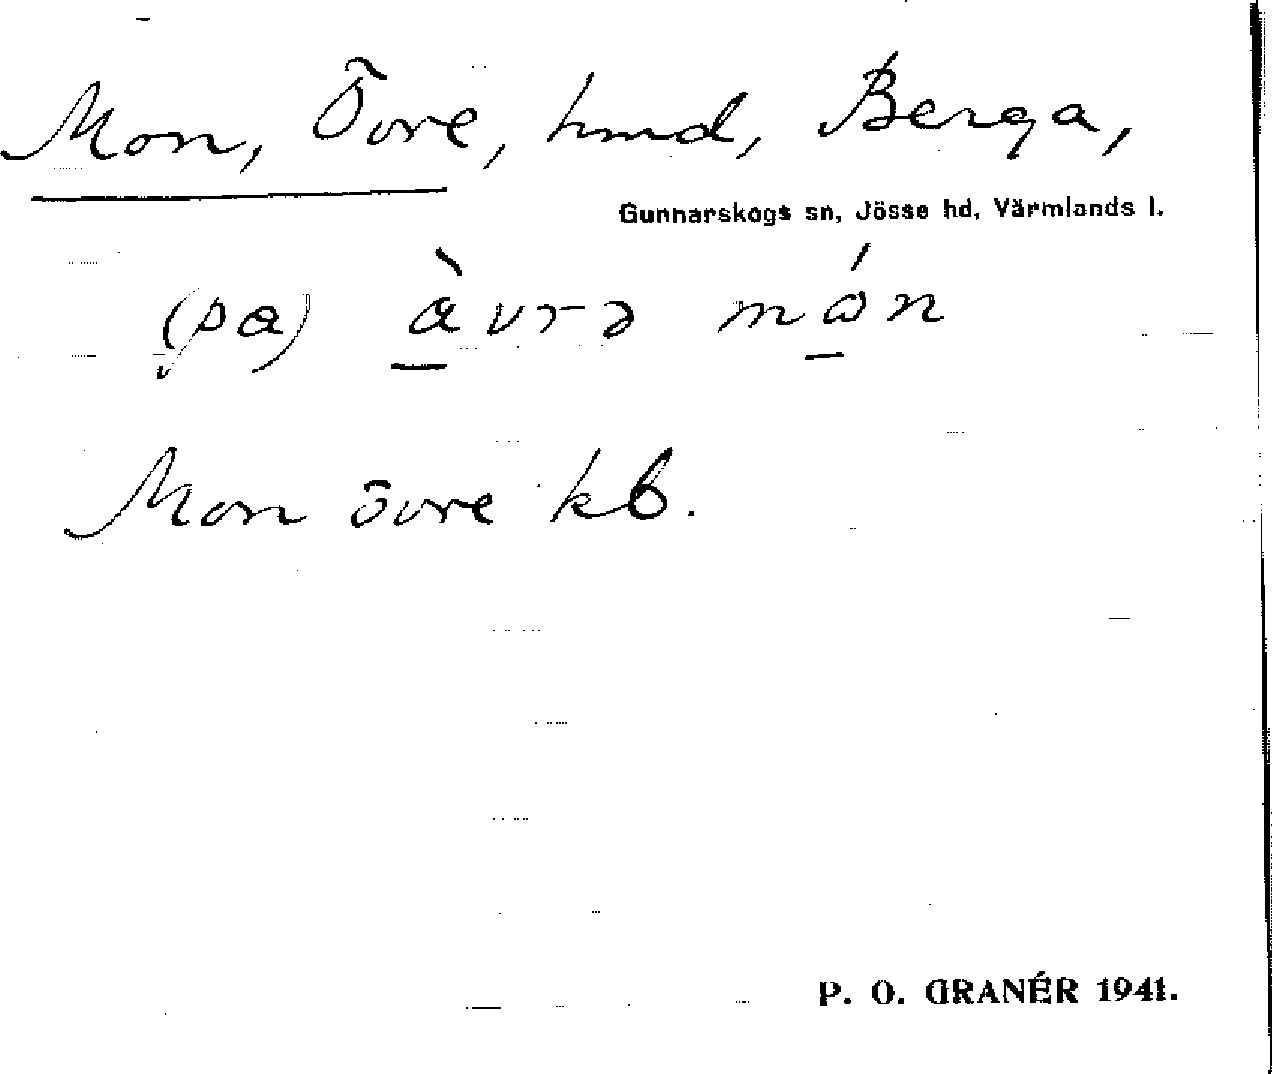 Mon, Övre, hmd, Berga,
Gunnarskogs sn, Jösse hd, Värmlands l.
(pa) àvrə món
Mon övre kb.
P. O. GRANÉR 1941.